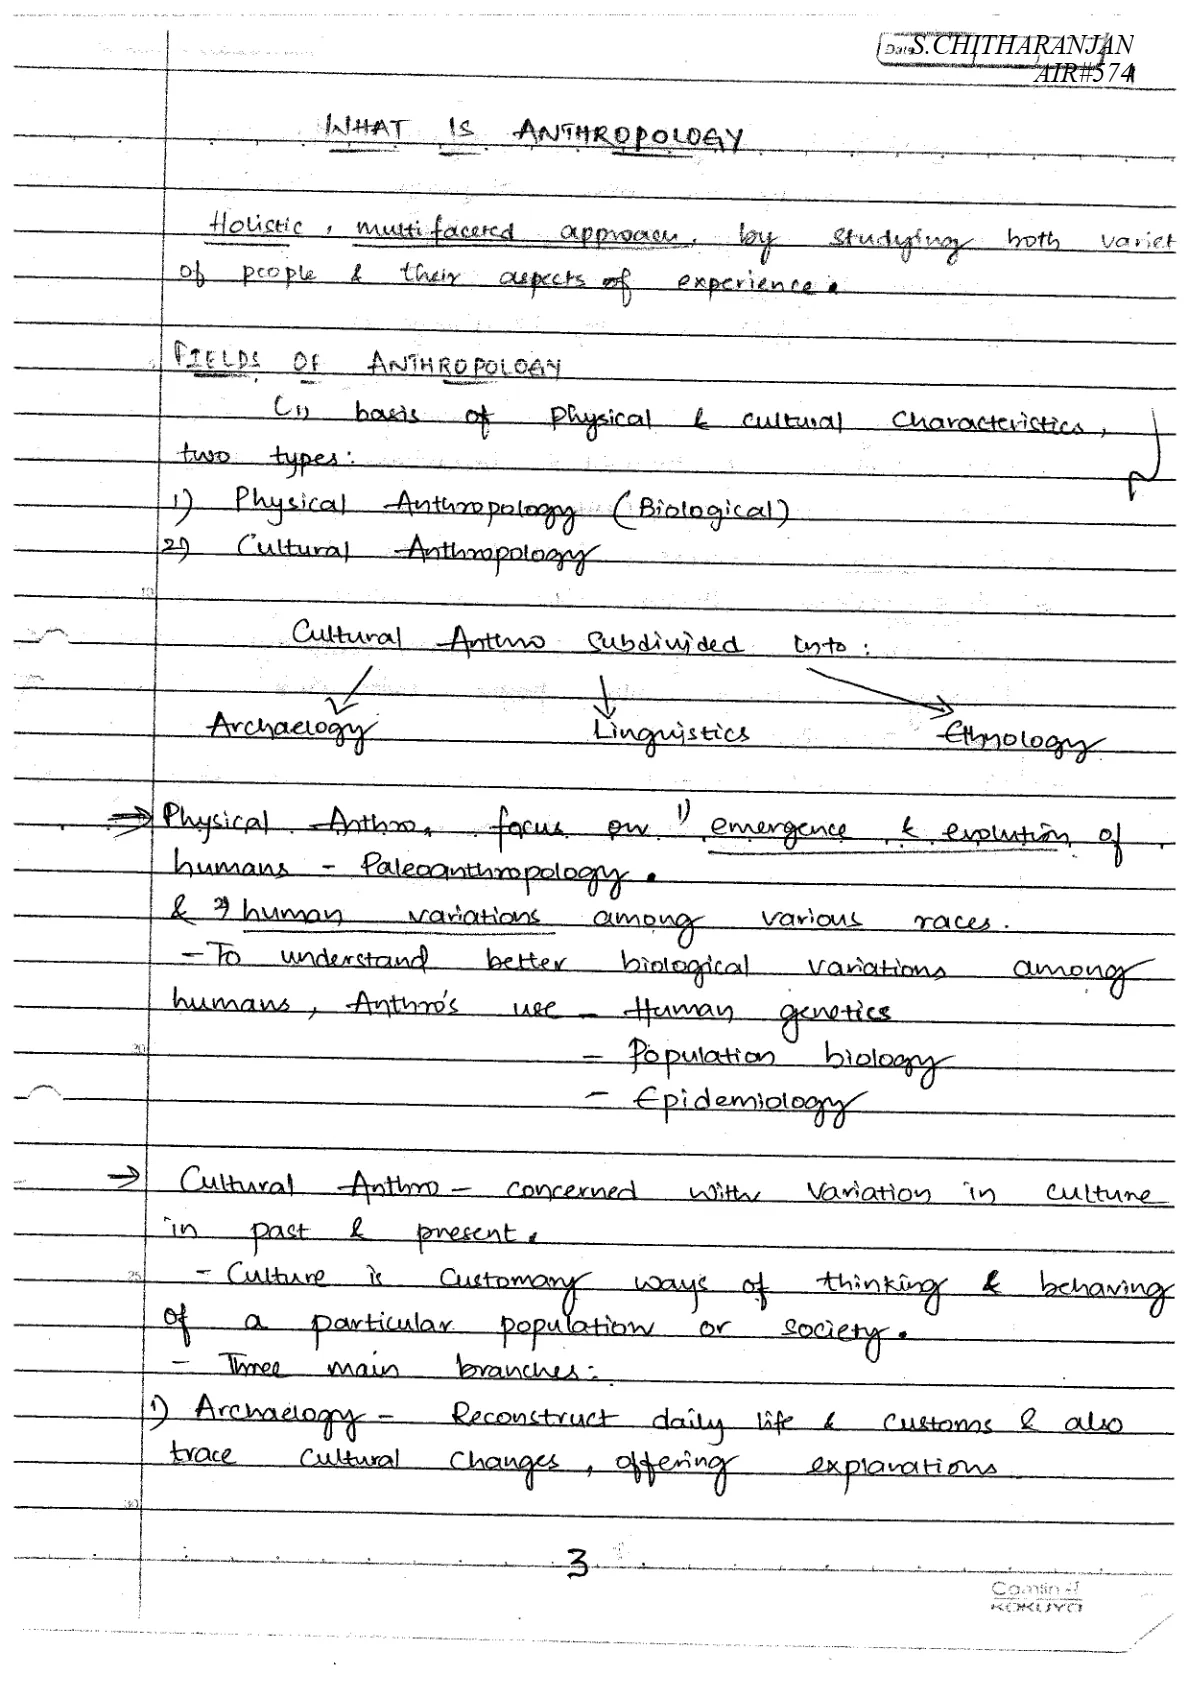 Date
S.CHITHARANJAN
AIR#574
WHAT IS ANTHROPOLOGY
Holistic, multi-faceted approach, by studying both variet
of people & their aspects of experience.
FIELDS OF ANTHROPOLOGY
basis of Physical & cultural Characteristics,
two types:
1) Physical Anthropology (Biological)
2) Cultural Anthropology
Cultural Anthro Subdivided into:
Archaelogy Linguistics Ethnology
⇒ Physical Anthro, focus on 1) emergence & evolution of
humans - Paleoanthropology.
& 2) human variations among various races.
- To understand better biological variations among
humans, Anthro's use - Human genetics
- Population biology
- Epidemiology
→ Cultural Anthro - concerned with Variation in culture
in past & present.
- Culture is Customary ways of thinking & behaving
of a particular population or society.
- Three main branches:
1) Archaelogy - Reconstruct daily life & customs & also
trace Cultural Changes, offering explanations
3
Camlin
KOKUYO